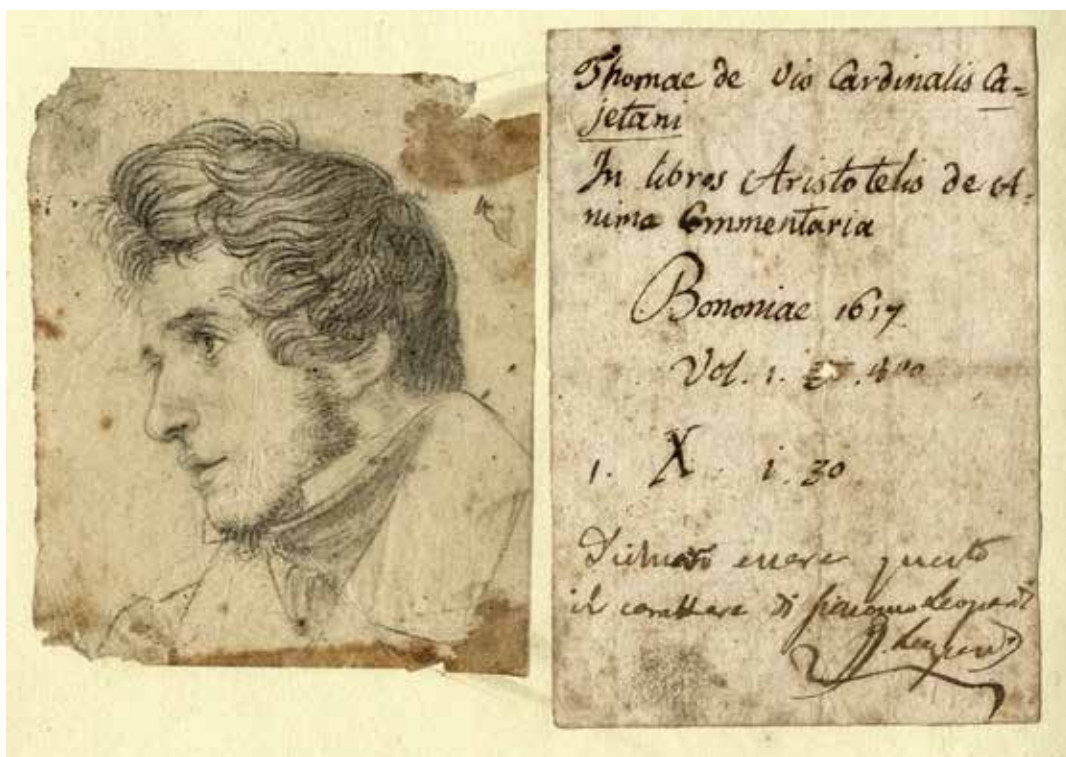 Thomae de Vio Cardinalis Ca-
jetani
In libros Aristotelis de A-
nima Commentaria
Bononiae 1617
Vol. 1.
1. X. i. 30
essere questo
il carattere di Giacomo Leopardi